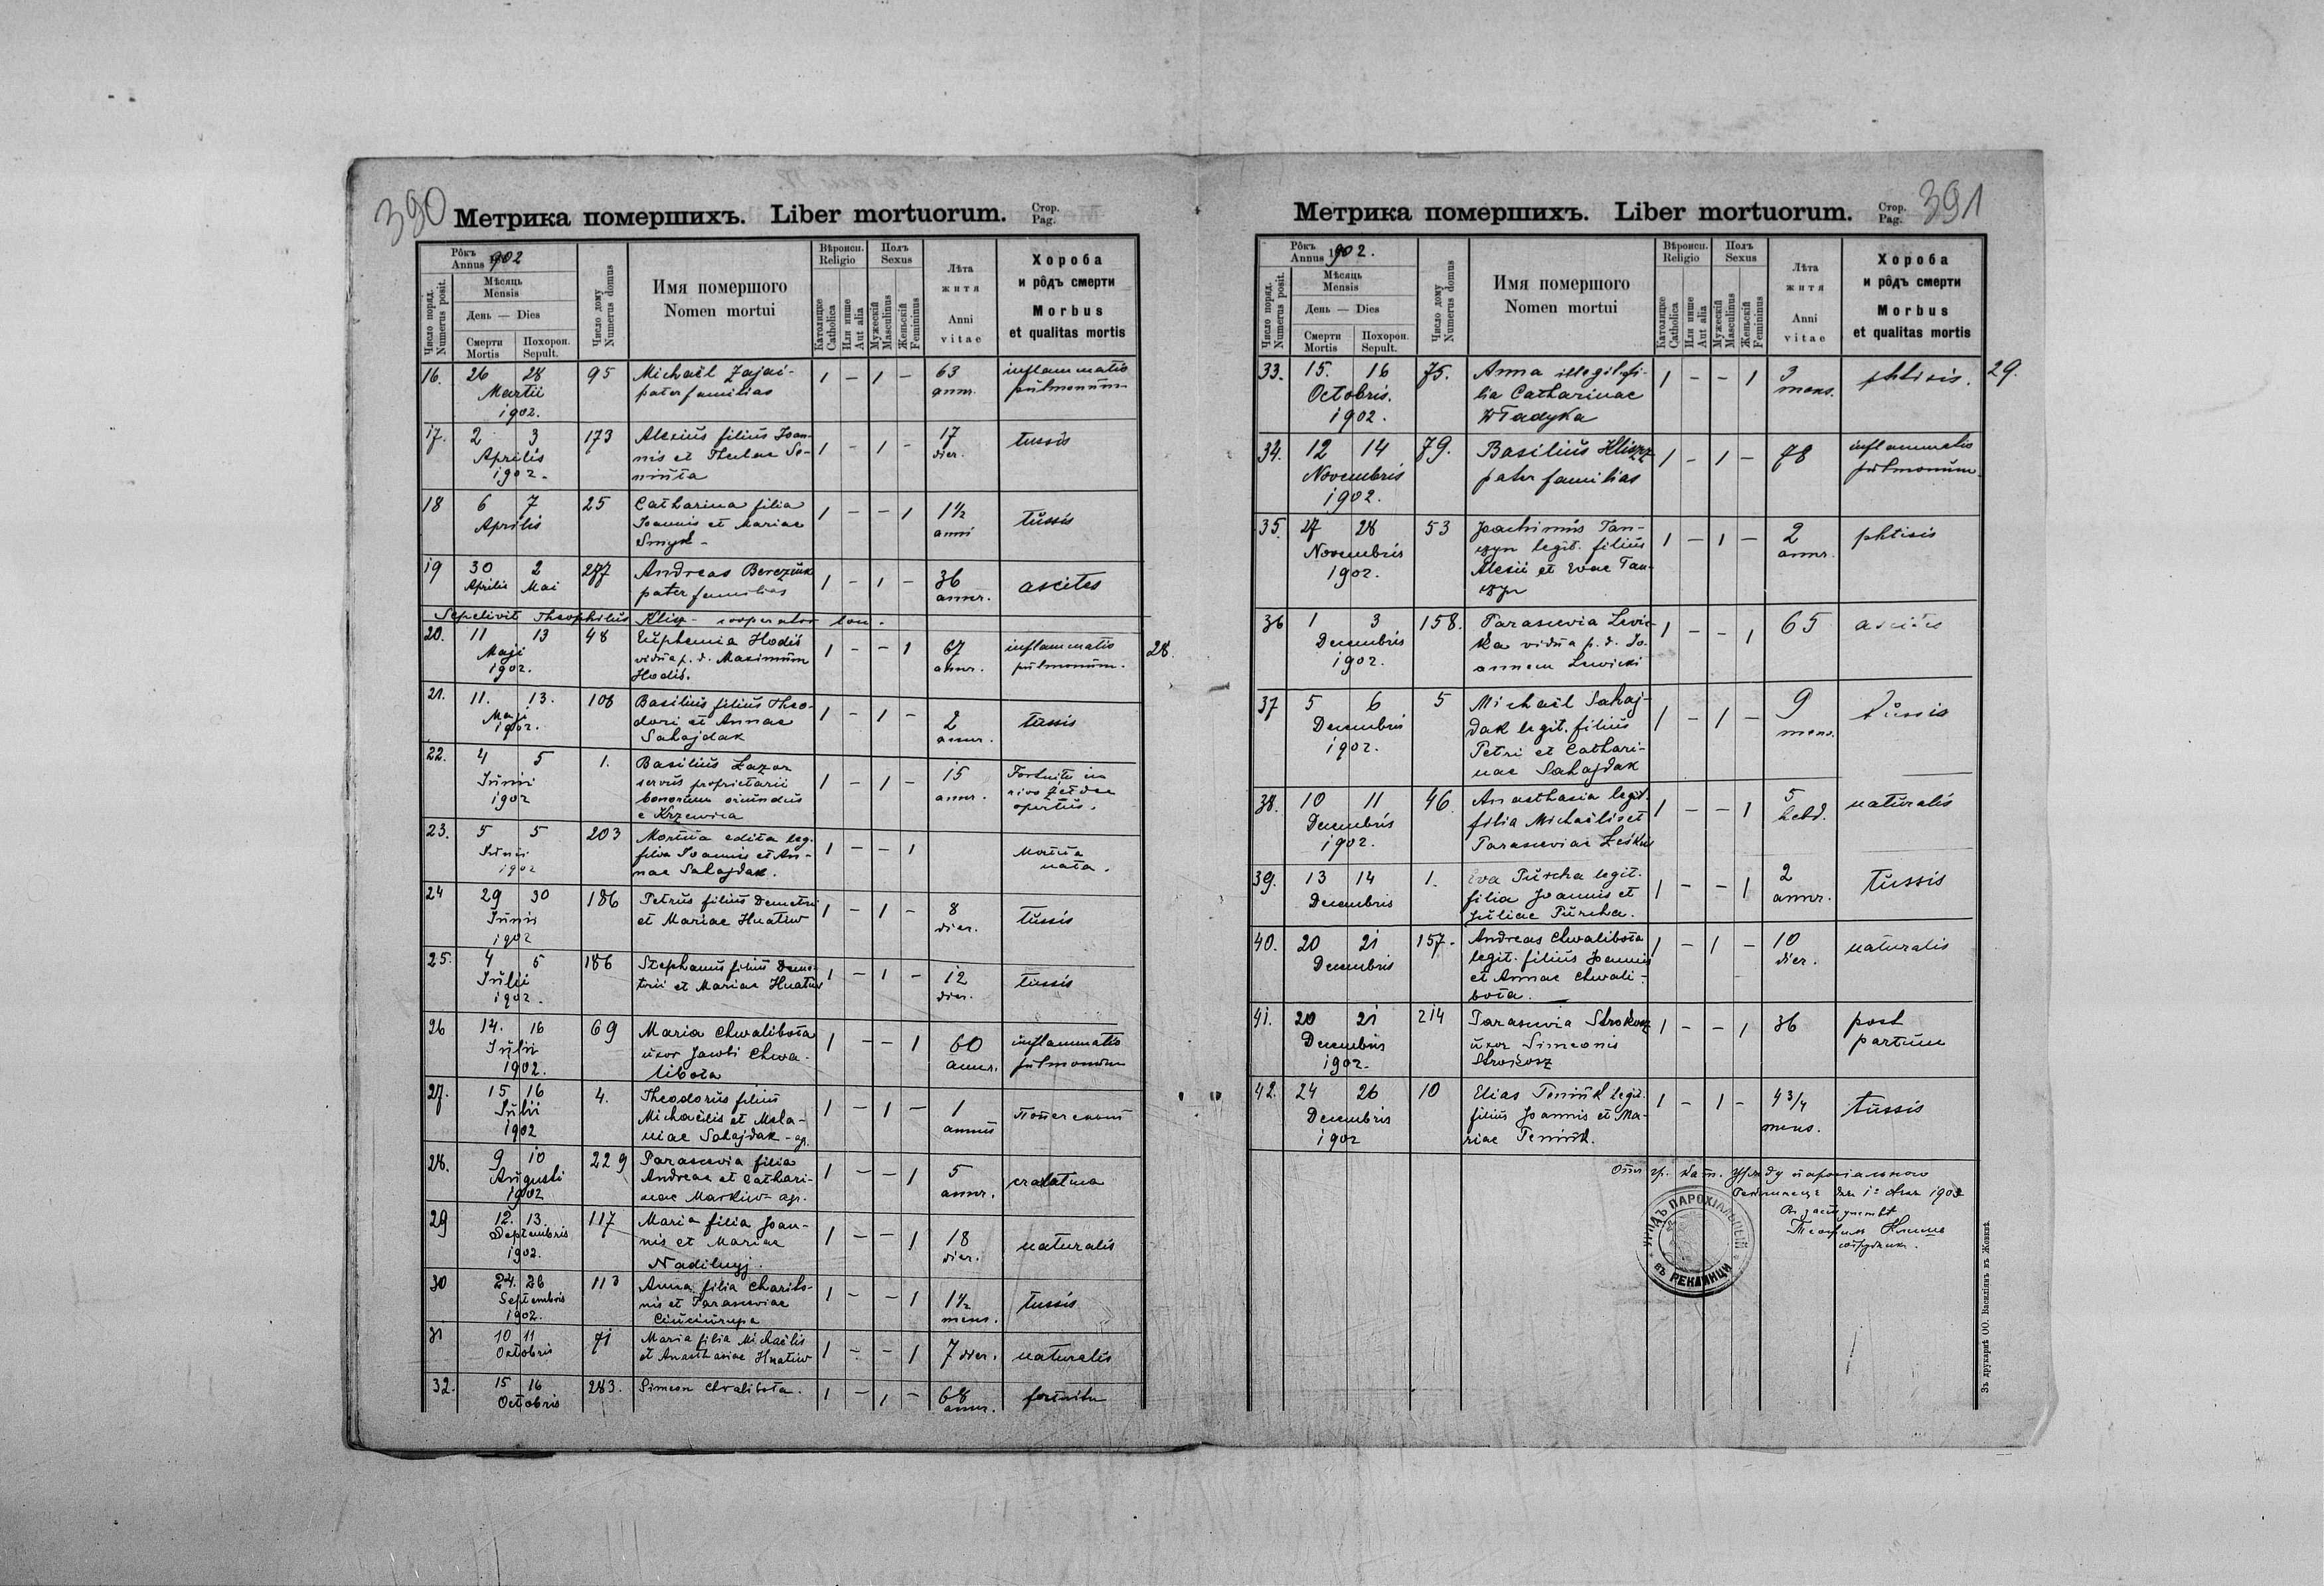 390
Метрика помершихъ. Liber mortuorum. Стор. Pag.
Рôкъ
Annus 1902
Мѣсяць
Mensis
День — Dies
Число поряд.
Numerus posit.
Смерти
Mortis
Похорон.
Sepult.
Число дому
Numerus domus
Имя помершого
Nomen mortui
Вѣроисп.
Religio
Католицке
Catholica
Или инше
Aut alia
Полъ
Sexus
Мужескій
Masculinus
Женьскій
Femininus
Лѣта
житя
Anni
vitae
Хороба
и рôдъ смерти
Morbus
et qualitas mortis
16. 26 28 95 Michaël Zajac- 1 – 1 – 63 inflammatio
Martii pater familias annr. pulmonum
1902.
17. 2 3 173 Alexius filius Joan- 1 – 1 – 17 tussis
Aprilis nis et Theclae Se- dier.
1902.
18 6 7 25 Catharina filia 1 – – 1 1½ tussis
Aprilis Joannis et Mariae anni
Smyk -
19 30 2 277 Andreas Bereziuk 1 – 1 – 36 ascites
Aprilis Mai pater familias annr.
Sepelivit Theophilus Klisz - cooperator
20. 11 13 48 Euphemia Hodis 1 – – 1 67 inflammatio 28.
Maji vidua p. d. Maximum annr. pulmonum.
1902. Hodis.
21. 11. 13. 108 Basilius filius Theo- 1 – 1 – 2 tussis
Maji dori et Annae annr.
1902. Sahajdak
22. 4 5 1. Basilius Lazar 1 – 1 – 15 Fortuito in
Junii servus proprietarii annr. rivo
1902 bonorum oriundus
e Krzewica
23. 5 5 203 Mortua edita leg. 1 – – 1 Mortua
Junii filia Joannis et An- nata.
1902 nae Sahajdak.
24 29 30 186 Petrus filius Demetrii 1 – 1 – 8 tussis
Junii et Mariae Hnatiw dier.
1902
25. 4 5 186 Stephanus filius Deme- 1 – 1 – 12 tussis
Julii trii et Mariae Hnatiw dier.
1902.
26 14. 16 69 Maria Chwalibota 1 – – 1 60 inflammatio
Julii uxor Jacobi Chwa- annr. pulmonum
1902. libota
27. 15 16 4. Theodorus filius 1 – 1 – 1
Julii Michaëlis et Mela- annus
1902 niae Sahajdak - agr.
28. 9 10 229 Parascevia filia 1 – – 1 5
Augusti Andreae et Cathari- annr.
1902 nae Markiw - agr.
29 12. 13. 117 Maria filia Joan- 1 – – 1 18 naturalis
Septembris nis et Mariae dier.
1902.
30 24. 26 113 Anna filia Charito- 1 – – 1 1½ tussis
Septembris nis et Parasceviae mens.
1902. Ciuciurupa
31 10 11 71 Maria filia Michaëlis 1 – – 1 7 dier. naturalis
Octobris et Anasthasiae Hnatiw
32. 15 16 283. Simeon Chwalibota. 1 – 1 – 68 fortuitu
Octobris annr.
391
Метрика помершихъ. Liber mortuorum. Стор. Pag.
Рôкъ
Annus 1902.
Мѣсяць
Mensis
День — Dies
Число поряд.
Numerus posit.
Смерти
Mortis
Похорон.
Sepult.
Число дому
Numerus domus
Имя помершого
Nomen mortui
Вѣроисп.
Religio
Католицке
Catholica
Или инше
Aut alia
Полъ
Sexus
Мужескій
Masculinus
Женьскій
Femininus
Лѣта
житя
Anni
vitae
Хороба
и рôдъ смерти
Morbus
et qualitas mortis
33. 15. 16 75. Anna illegit. fi- 1 – – 1 3 phtisis. 29.
Octobris. lia Catharinae mens.
1902. Władyka
34. 12 14 79. Basilius Kliszz 1 – 1 – 78 inflammatio
Novembris pater familias pulmonum
1902.
35. 27 28 53 Joachimus Tan- 1 – 1 – 2 phtisis
Novembris czyn legit. filius annr.
1902. Alexii et Evae Tan-
czyn
36 1 3 158. Parascevia Lewic- 1 – – 1 65 ascites
Decembris ka vidua p. d. Jo-
1902. annem Lewicki
37 5 6 5 Michaël Sahaj- 1 – 1 – 9 tussis
Decembris dak legit. filius mens.
1902. Petri et Cathari-
nae Sahajdak
38. 10 11 46 Anasthasia legit. 1 – – 1 5 naturalis
Decembris filia Michaëlis et hebd.
1902. Parasceviae Leskiw
39. 13 14 1. Eva Purcha legit. 1 – – 1 2 tussis
Decembris filia Joannis et annr.
Juliae Purcha.
40. 20 21 157. Andreas Chwalibota 1 – 1 – 10 naturalis
Decembris legit. filius Joannis dier.
et Annae Chwali-
bota.
41. 20 21 214 Parascevia Strokosz 1 – – 1 36 post
Decembris uxor Simeonis partum
1902. Strokosz
42. 24 26 10 Elias Peniuk legit. 1 – 1 – 4¾ tussis
Decembris filius Joannis et Ma- mens.
1902 riae Peniuk.
Отъ гр. кат. Уряду парохіального
УРЯДЪ ПАРОХІАЛЬНЫЙ ВЪ РЕКЛИНЦИ
Зъ друкарнѣ ОО. Василіянъ въ Жовквѣ